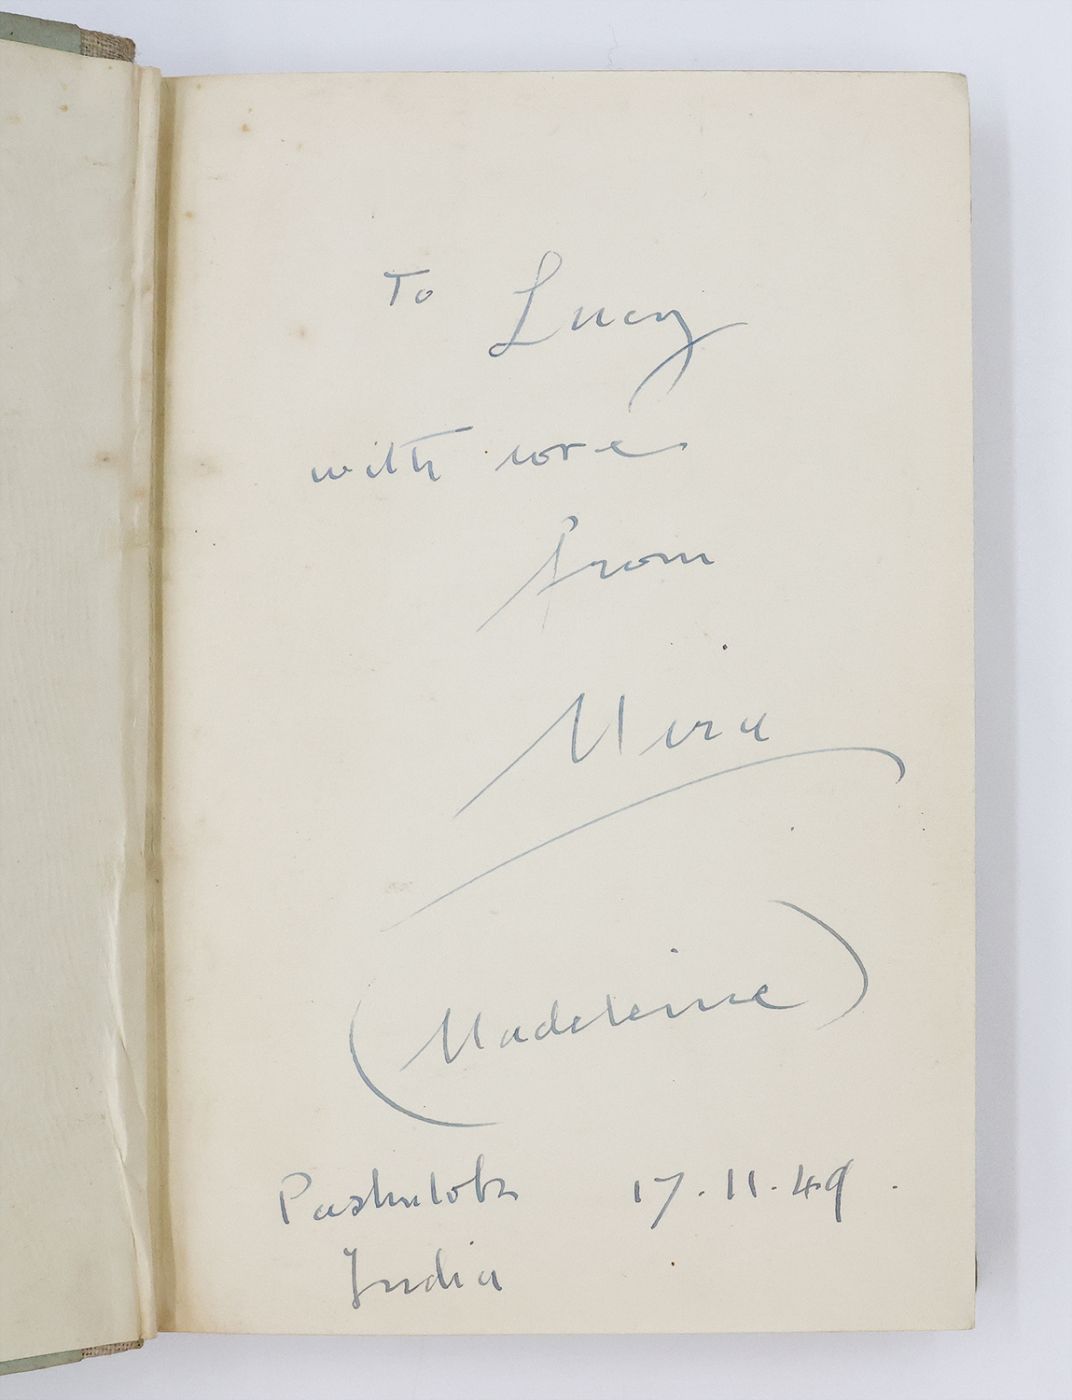 To Lucy
with love
from
Mira
(Madeleine)
Pashulok 17.11.49.
India